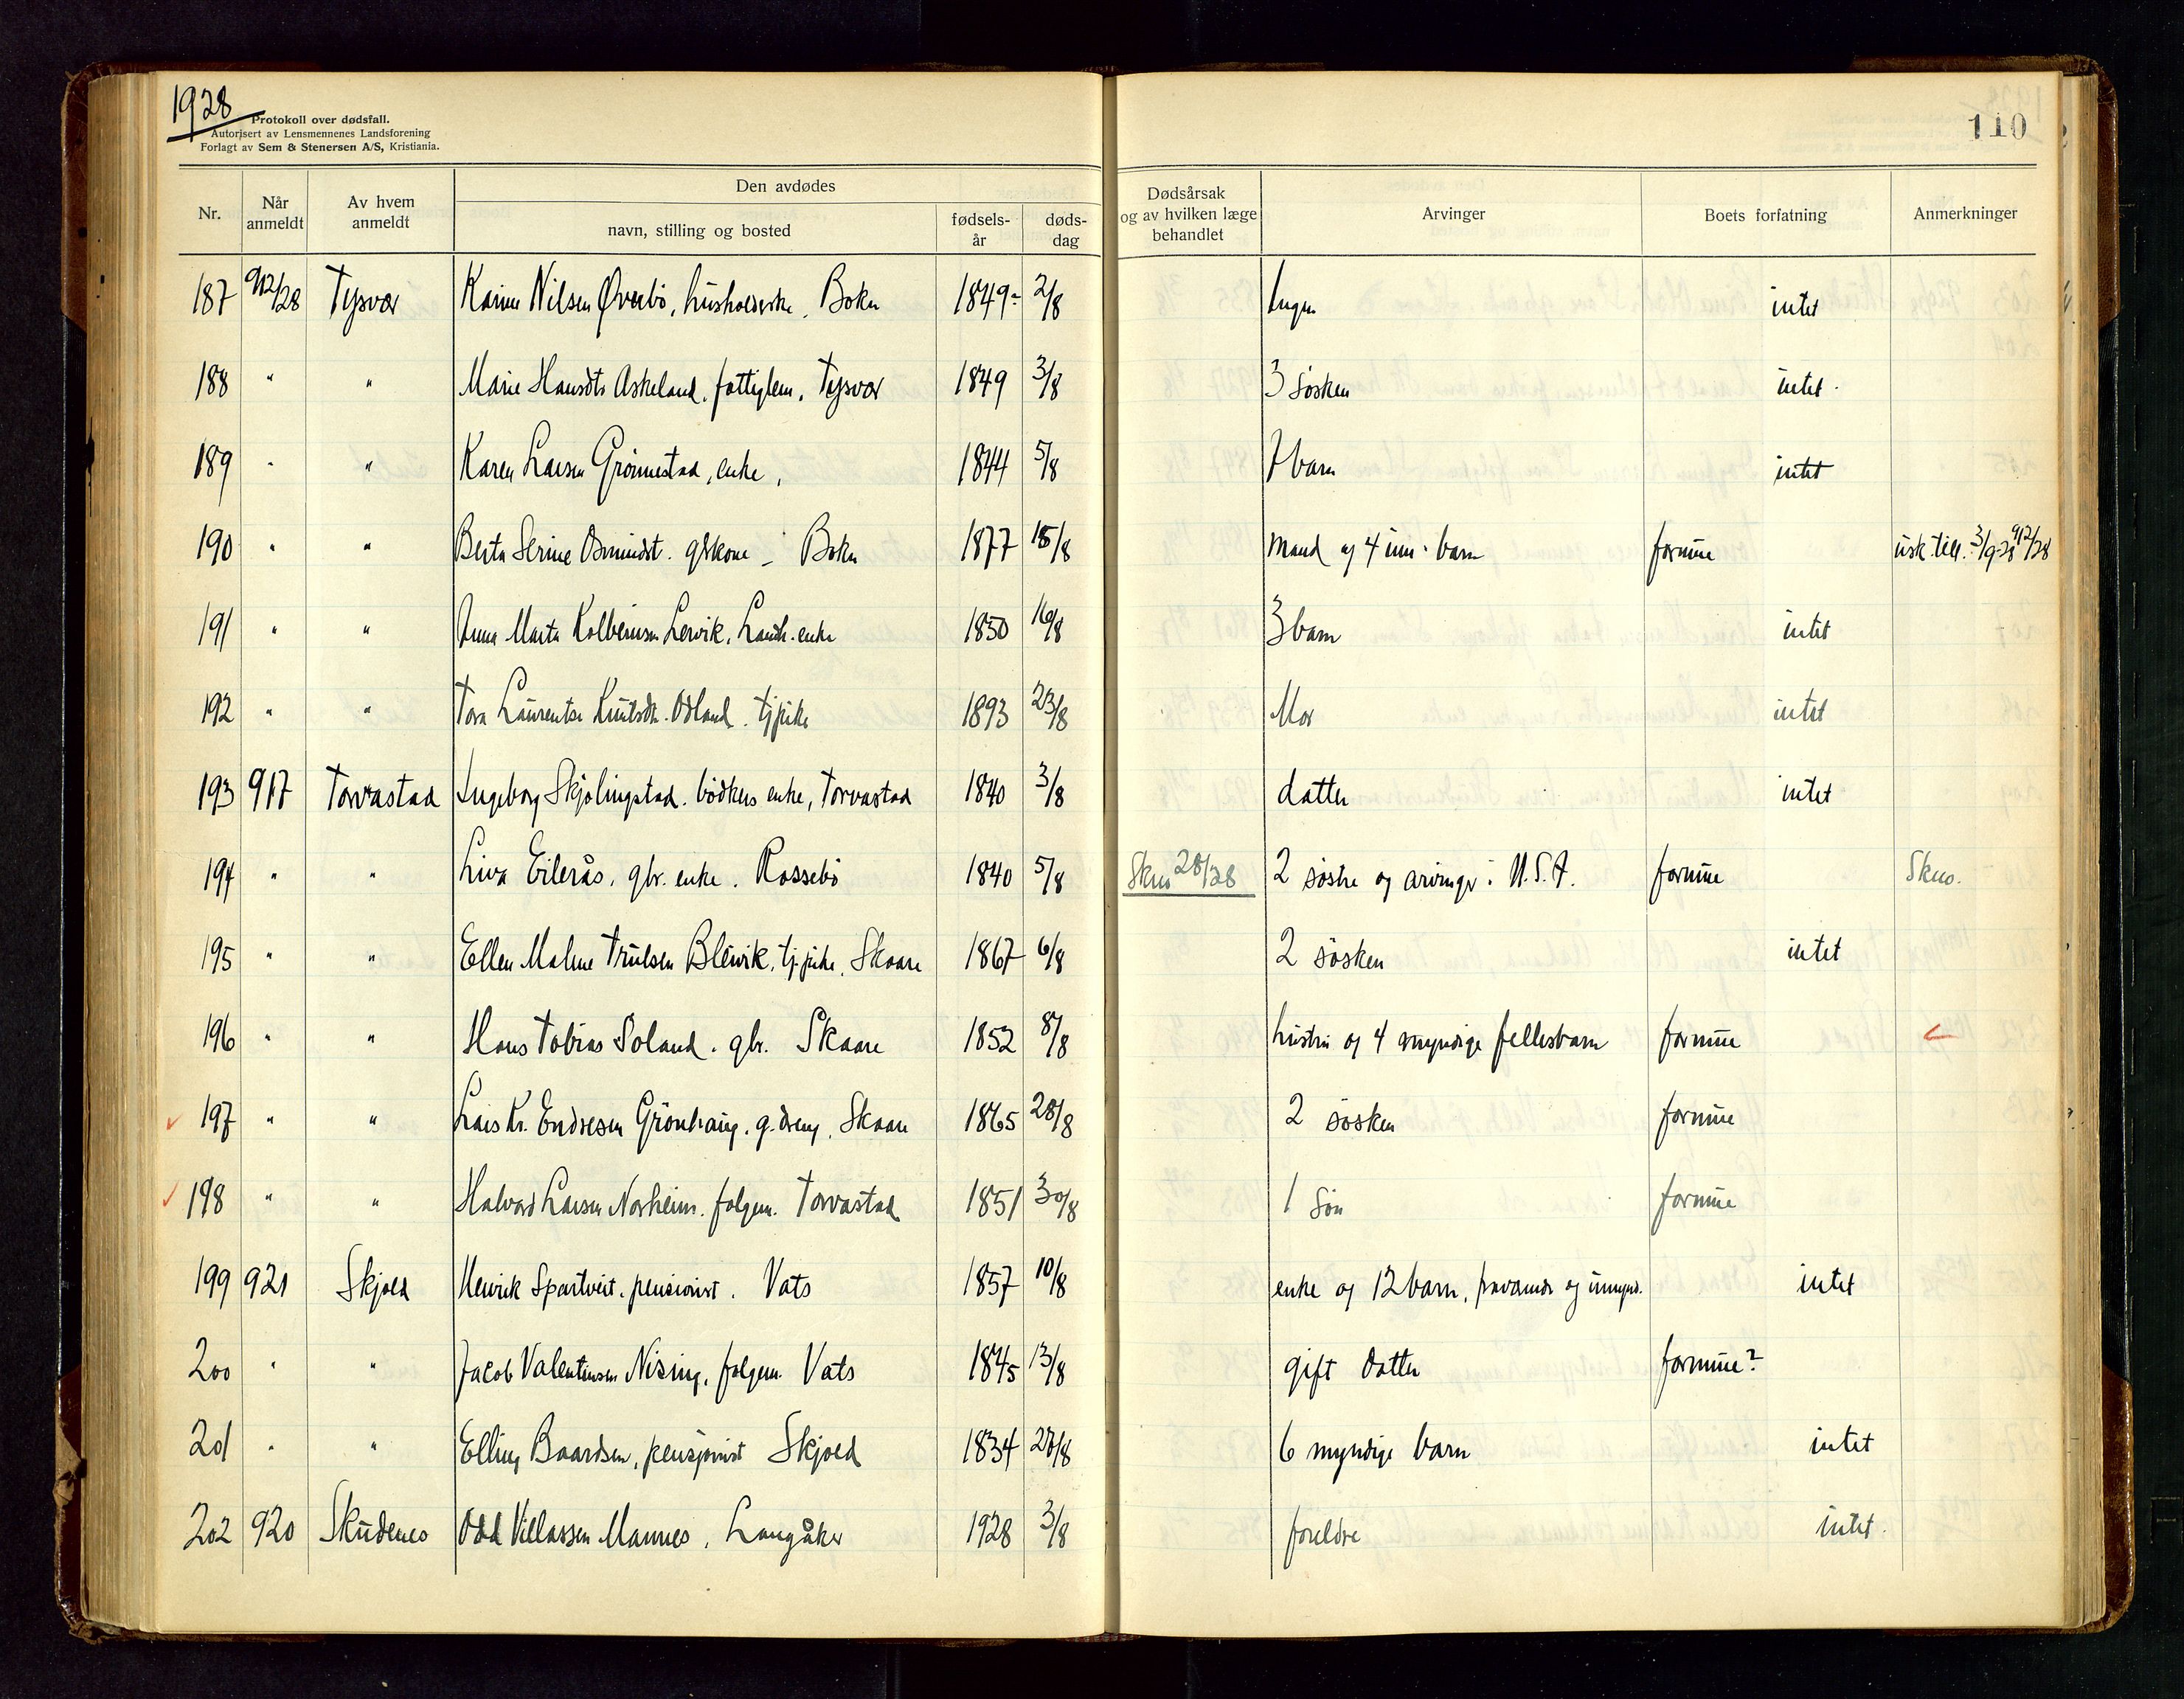 1928
Protokoll over dødsfall.
Autorisert av Lensmennenes Landsforening
Forlagt av Sem & Stenersen A/S, Kristiania.
110
Nr. Når anmeldt Av hvem anmeldt Den avdødes navn, stilling og bosted fødsels-år døds-dag Dødsårsak og av hvilken læge behandlet Arvinger Boets forfatning Anmerkninger
187 912/28 Tysvær Karine Nilsen Øvrebö, Bokn 1849 2/8 Ingen intet
188 " " Marie Hansdtr Askeland, fattiglem, Tysvær 1849 3/8 3 sösken intet
189 " " Karen Larsen Grönnestad, enke, 1844 5/8 7 barn intet
190 " " Berta Serine Osmundst. gbkone - Bokn 1877 18/8 Mand og 4 um. barn formue 912/28
191 " " Anna Marta Kolbeinsen Lervik, enke 1850 16/8 3 barn intet
192 " " Tora Laurentse Knutsdtr. Odland. tjpike 1893 23/8 Mor intet
193 917 Torvastad Ingeborg Skjölingstad. bödkers enke, Torvastad 1840 3/8 datter intet
194 " " Liva Eilerås, gbr. enke. Rossebö 1840 5/8 28/38 2 söstre og arvinger i U.S.A. formue
195 " " Ellen Malene Trulsen Blēivik, tj.pike, Skaare 1867 6/8 2 sösken intet
196 " " Hans Tobias Soland. gbr. Skaare 1852 8/8 hustru og 4 myndige fellesbarn formue
197 " " Lars Kr. Endresen Grönhaug. g.dreng, Skaare 1865 28/8 2 sösken formue
198 " " Halvard Larsen Norheim. folgem. Torvastad 1851 30/8 1 Sön formue
199 921 Skjold Henrik Spartveit. pensionist. Vats 1857 10/8 enke og 12 barn, og umynd. intet
200 " " Jacob Valentinsen Nising, folgem. Vats 1845 13/8 gift datter formue?
201 " " Elling Baardsen, pensjonist Skjold 1834 6 myndige barn intet
202 920 Skudenes Odd Villassen Mannes, Langåker 1928 3/8 foreldre intet.